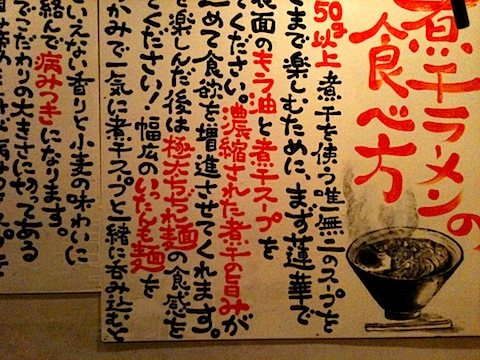 煮干ラーメンの
食べ方
50g以上 煮干を使う唯一無二のスープを
まで楽しむために、まず蓮華で
表面のもう油と煮干スープを
てください。濃縮された煮干の旨みが
めて食欲を増進させてくれます。
を楽しんだ後は極太ちぢれ麺の食感を
てください！幅広のいったん麺を
かみで一気に煮干スープと一緒に呑み込むと
いえない香りと小麦の味わいに
絡んで病みつきになります。
でこだわりの大きさに切ってある